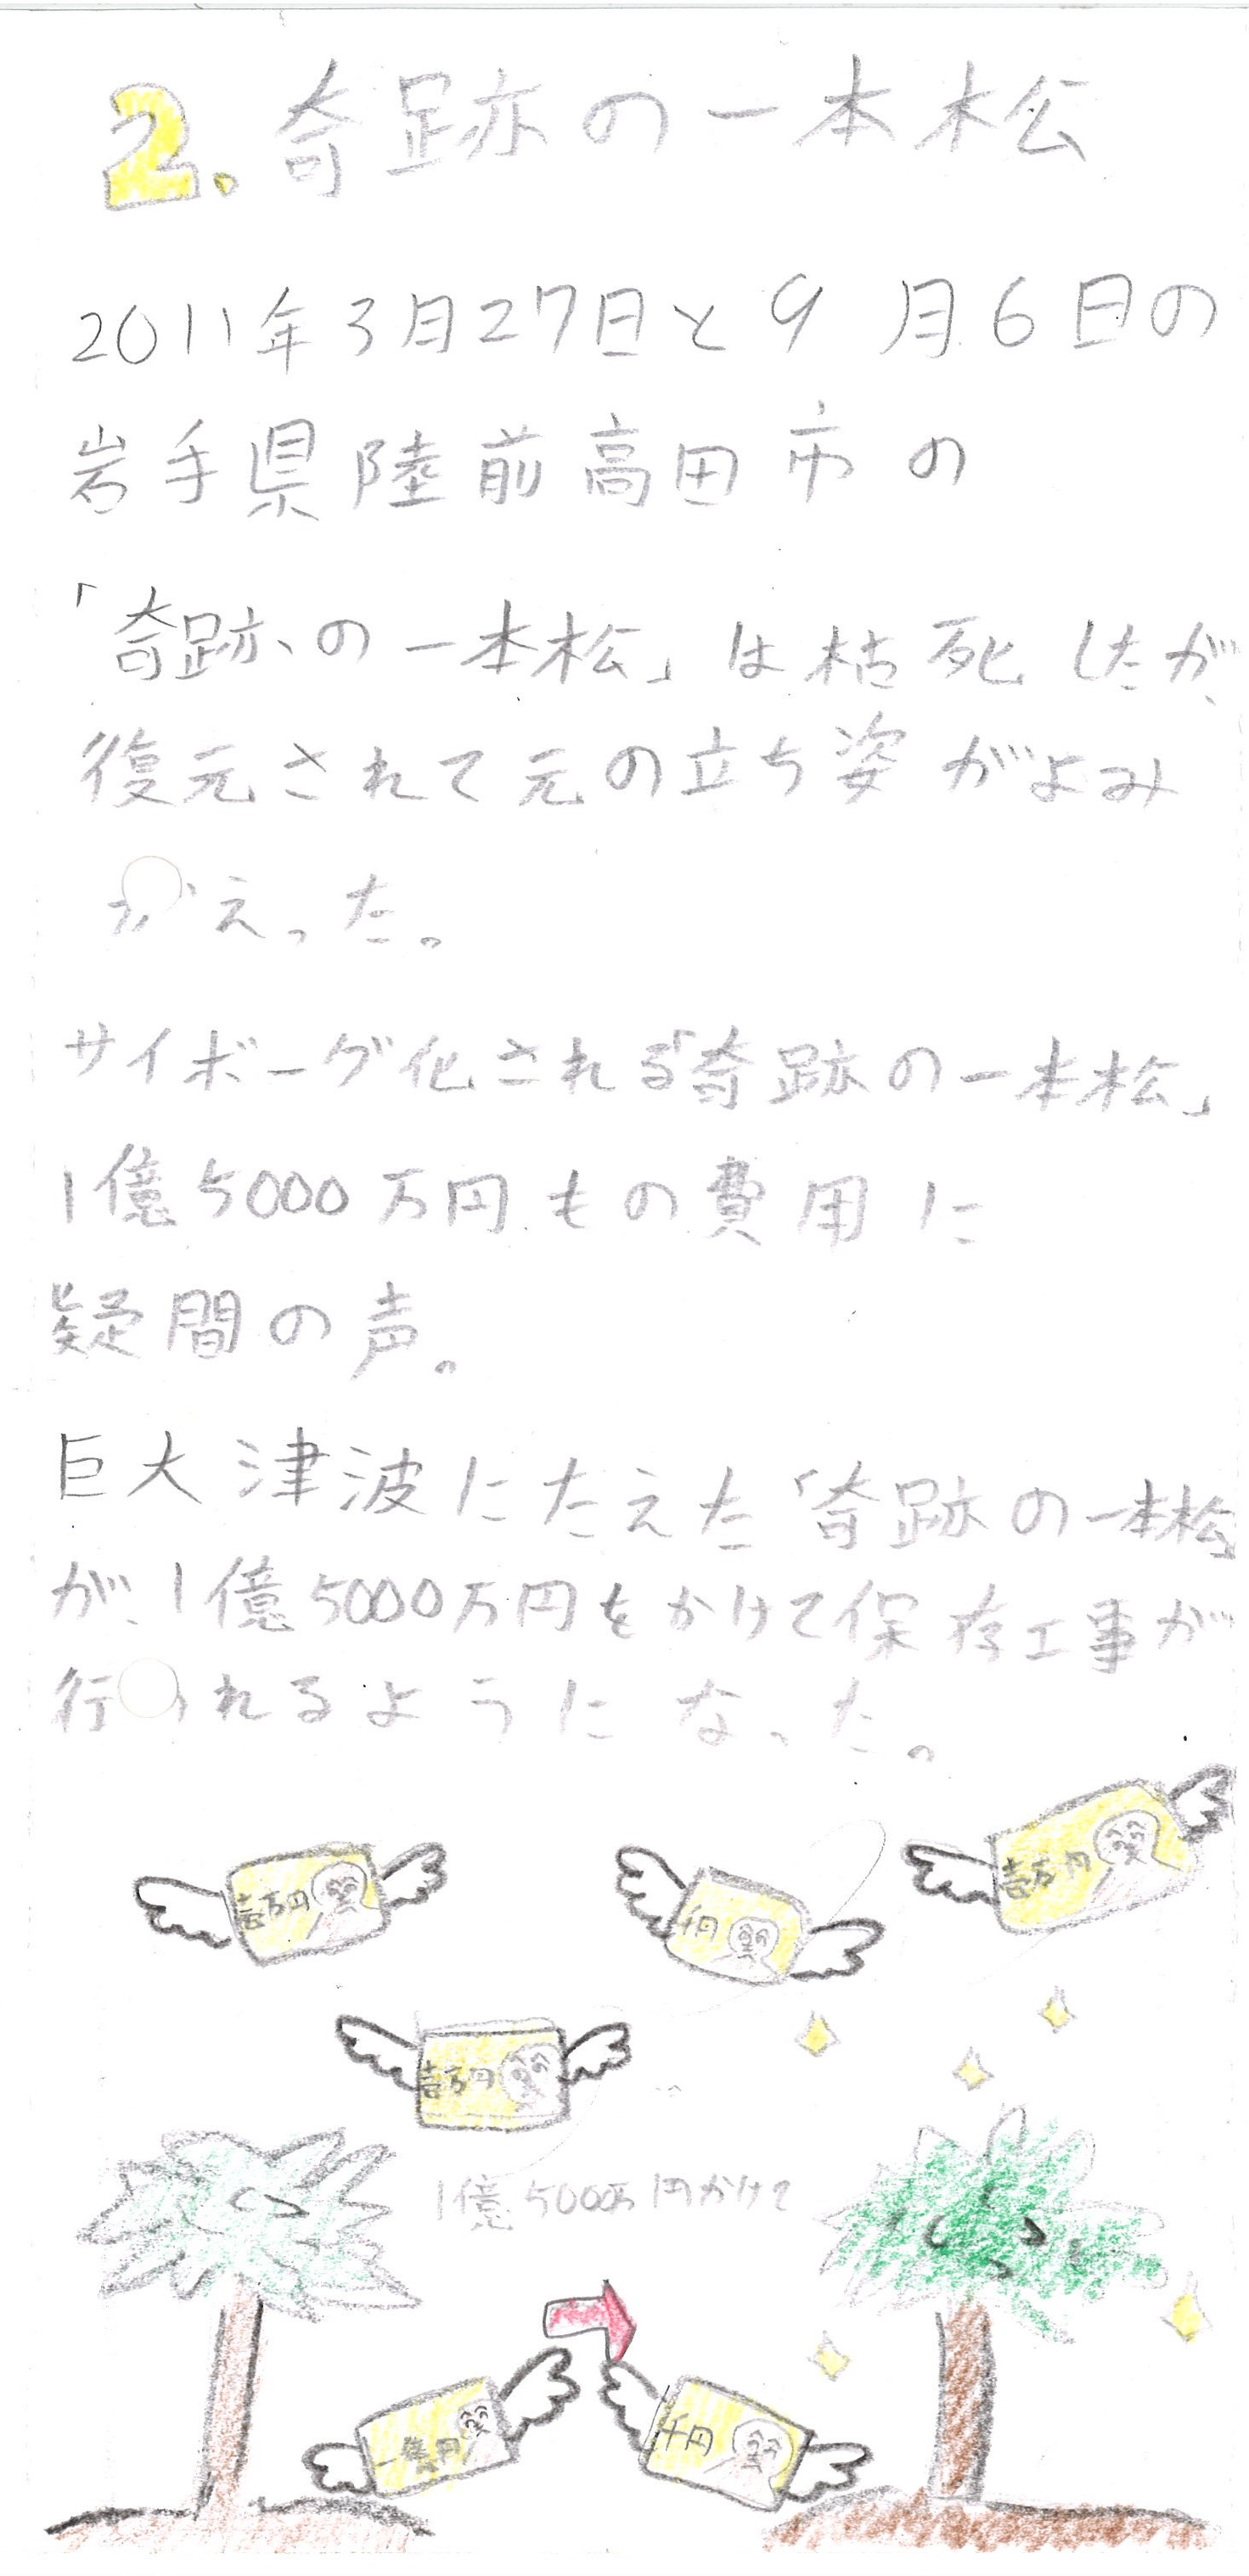 2. 奇跡の一本松
2011年3月27日と9月6日の
岩手県陸前高田市の
「奇跡の一本松」は枯死したが、
復元されて元の立ち姿がよみ
がえった。
サイボーグ化される「奇跡の一本松」
1億5000万円もの費用に
疑間の声。
巨大津波にたえた「奇跡の一本松」
が、1億5000万円をかけて保存工事が
行われるようになった。
壱万円
千円
壱万円
壱万円
1億5000万円かけて
一億円
千円